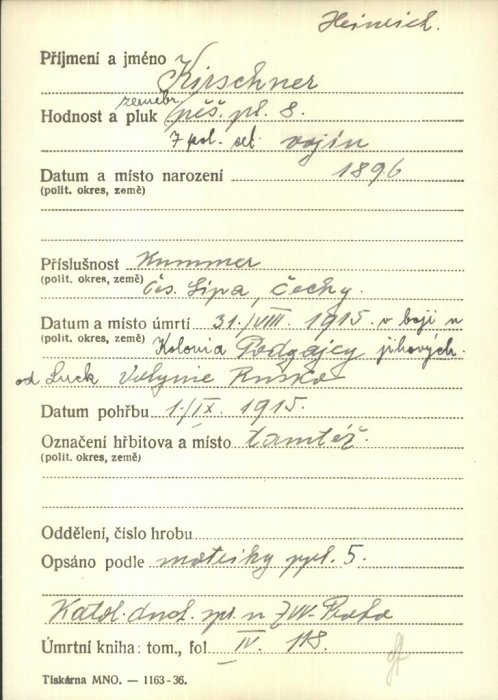 Heinrich.
Příjmení a jméno Kirschner
zeměbr.
Hodnost a pluk pěš. pl. 8.
7 pol. set. vojín
Datum a místo narození 1896
(polit. okres, země)
Příslušnost Kummer
(polit. okres, země) Čes. Lípa, Čechy.
Datum a místo úmrtí 31./VIII. 1915. v boji u
(polit. okres, země) Kolonia Podgajcy jihových.
od Luck Volynie Rusko
Datum pohřbu 1./IX. 1915.
Označení hřbitova a místo tamtéž.
(polit. okres, země)
Oddělení, číslo hrobu
Opsáno podle matriky ppl. 5.
Katol. duch. spr. u ZVV- Praha
Úmrtní kniha: tom., fol. IV. 118.
Tiskárna MNO. — 1163-36.